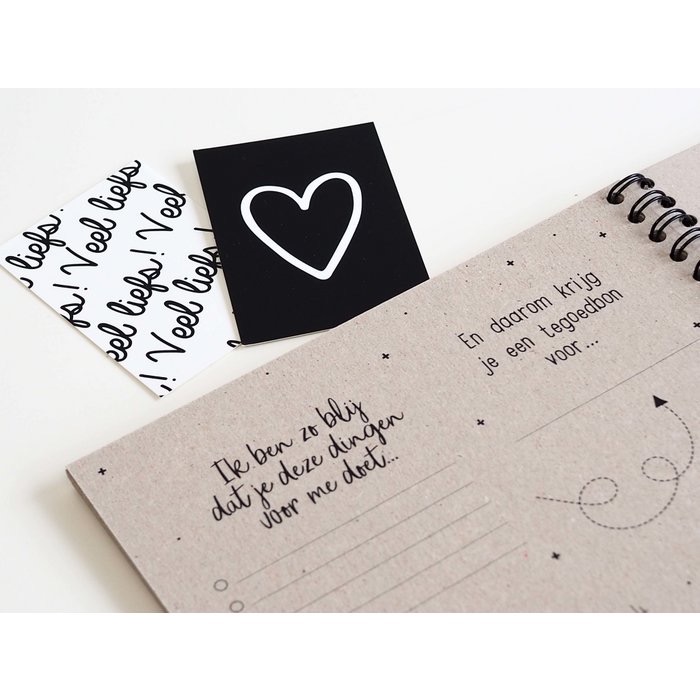 liefs!
fs! Veel liefs
eel liefs! Veel
liefs! Veel liefs!
! Veel
Ik ben zo blij
dat je deze dingen
voor me doet...
En daarom krijg
je een tegoedbon
voor ...